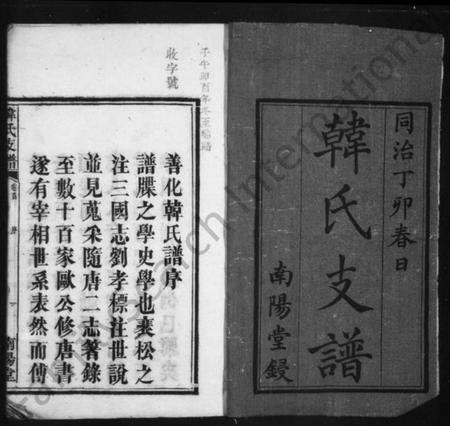 同治丁卯春日
韓氏支譜
南陽堂鋟
子午卯酉年冬至
收字號
善化韓氏譜序
譜牒之學史學也裴松之
注三國志劉孝標注世說
並見蒐采隨唐二志箸錄
至數十百家歐公修唐書
遂有宰相世系表然而傳
韓氏支譜
序
南陽堂
FamilySearch International